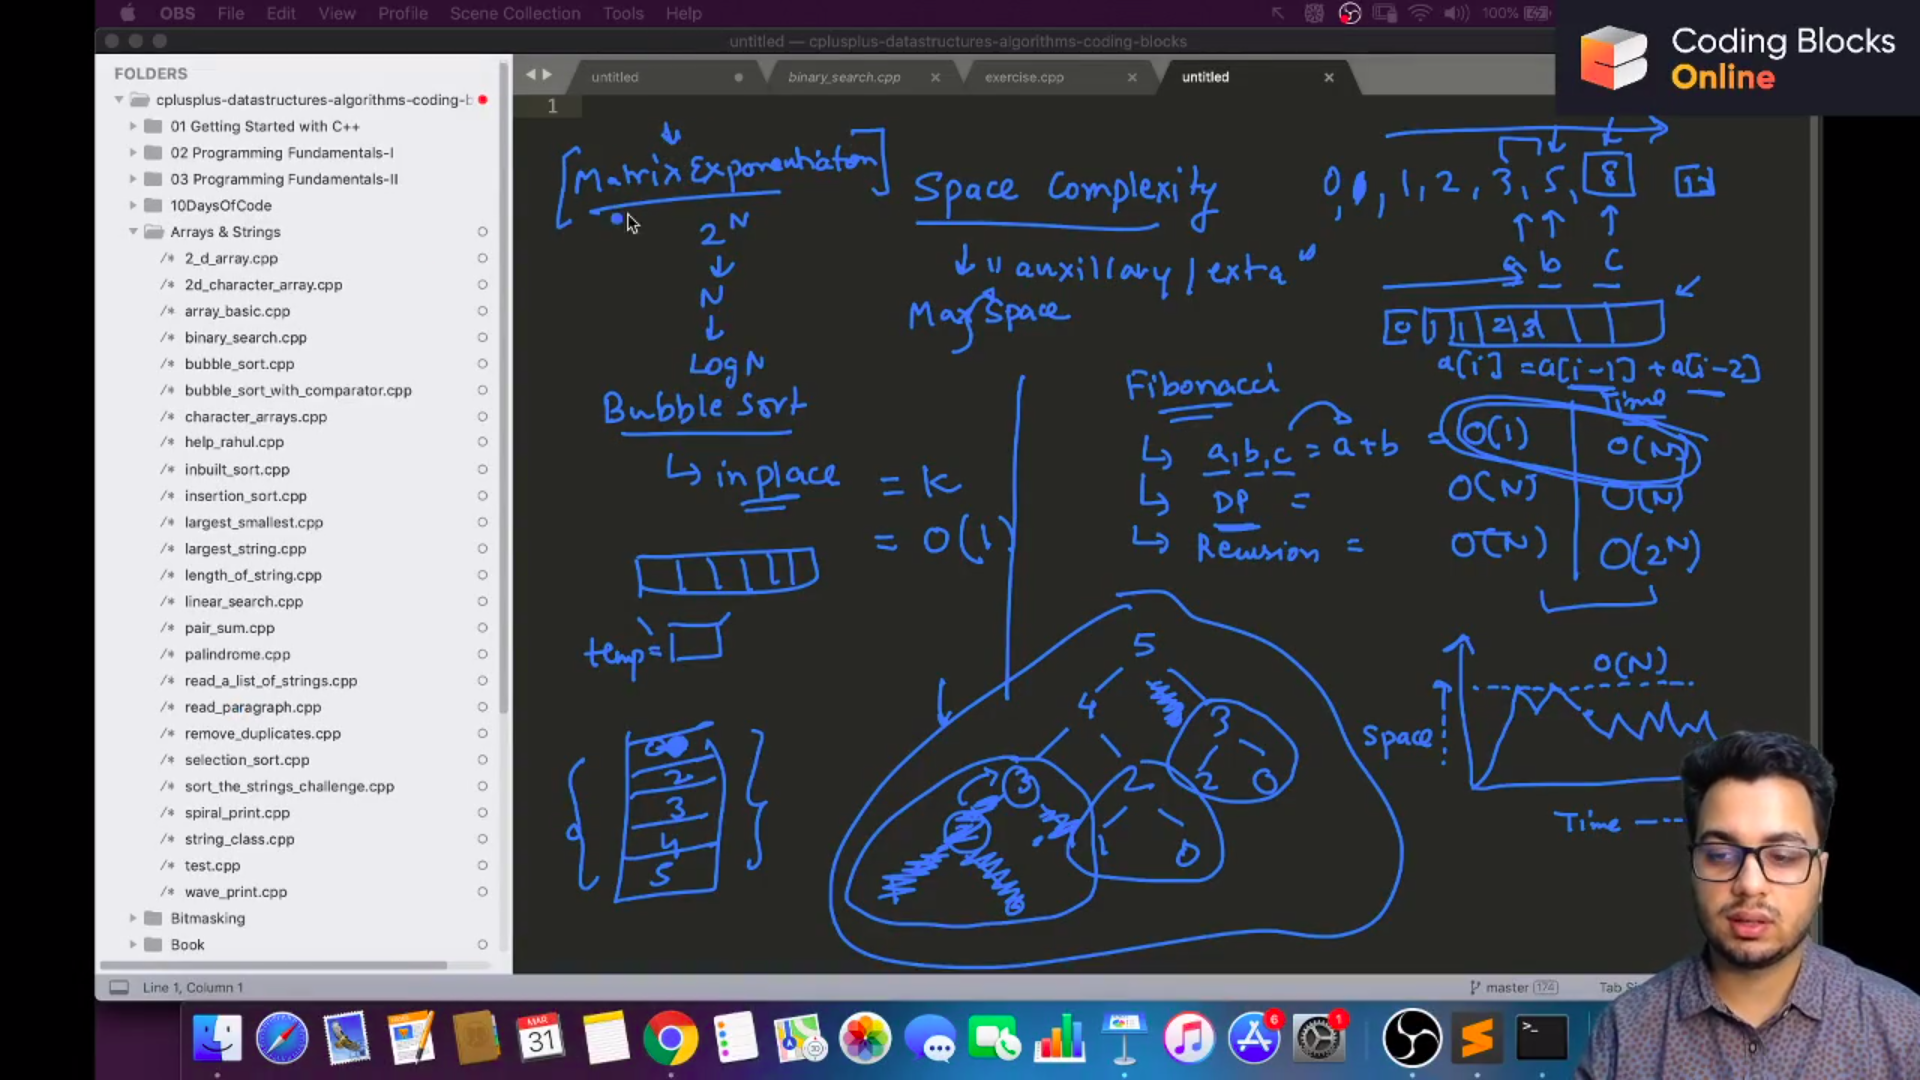 OBS File Edit View Profile Scene Collection Tools Help 100%
Coding Blocks
Online
untitled — cplusplus-datastructures-algorithms-coding-blocks
FOLDERS
cplusplus-datastructures-algorithms-coding-b
01 Getting Started with C++
02 Programming Fundamentals-I
03 Programming Fundamentals-II
10DaysOfCode
Arrays & Strings
/* 2_d_array.cpp
/* 2d_character_array.cpp
/* array_basic.cpp
/* binary_search.cpp
/* bubble_sort.cpp
/* bubble_sort_with_comparator.cpp
/* character_arrays.cpp
/* help_rahul.cpp
/* inbuilt_sort.cpp
/* insertion_sort.cpp
/* largest_smallest.cpp
/* largest_string.cpp
/* length_of_string.cpp
/* linear_search.cpp
/* pair_sum.cpp
/* palindrome.cpp
/* read_a_list_of_strings.cpp
/* read_paragraph.cpp
/* remove_duplicates.cpp
/* selection_sort.cpp
/* sort_the_strings_challenge.cpp
/* spiral_print.cpp
/* string_class.cpp
/* test.cpp
/* wave_print.cpp
Bitmasking
Book
untitled binary_search.cpp exercise.cpp untitled
1
[Matrix Exponentiaton]
2^N
N
Log N
Space Complexity
"auxillary / extra"
Max Space
0, 1, 2, 3, 5, 8 13
a b c
0 1 1 2 3
a[i] = a[i-1] + a[i-2]
Bubble Sort
in place = K
= O(1)
temp =
Fibonacci
Time
a, b, c = a+b = O(1) O(N)
DP = O(N) O(N)
Recursion = O(N) O(2^N)
2
3
4
5
5
4 3
3 2 2 0
1 0
O(N)
Space
Time
Line 1, Column 1
master 174
Tab S
MAR
31
6
1